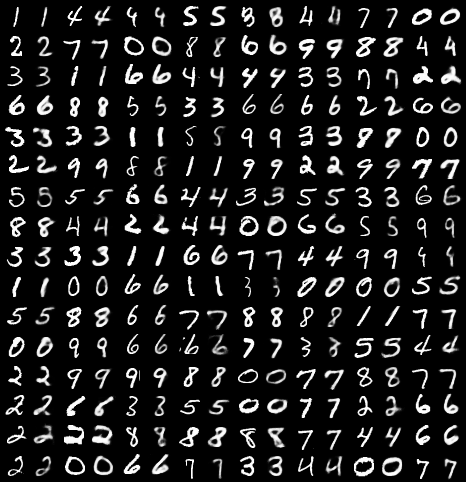 1 1 4 4 4 4 5 5 8 8 4 4 7 7 0 0
2 2 7 7 0 0 8 8 6 6 9 9 8 8 4 4
3 3 1 1 6 6 4 4 4 4 3 3 7 7 2 2
6 6 8 8 5 5 3 3 6 6 6 6 2 2 6 6
3 3 3 3 1 1 5 5 9 9 3 3 9 9 0 0
2 2 9 9 8 8 1 1 9 9 2 2 9 9 7 7
5 5 5 5 6 6 4 4 3 3 5 5 3 3 6 6
8 8 4 4 2 2 4 4 0 0 6 6 5 5 9 9
3 3 3 3 1 1 6 6 7 7 4 4 9 9 4 4
1 1 0 0 6 6 1 1 3 3 0 0 0 0 5 5
5 5 8 8 6 6 7 7 8 8 8 8 1 1 7 7
0 0 9 9 6 6 6 6 7 7 3 3 5 5 4 4
2 2 9 9 9 9 8 8 0 0 7 7 8 8 7 7
2 2 6 6 3 3 5 5 0 0 7 7 2 2 6 6
2 2 2 2 8 8 8 8 8 8 7 7 4 4 6 6
2 2 0 0 6 6 7 7 3 3 4 4 0 0 7 7